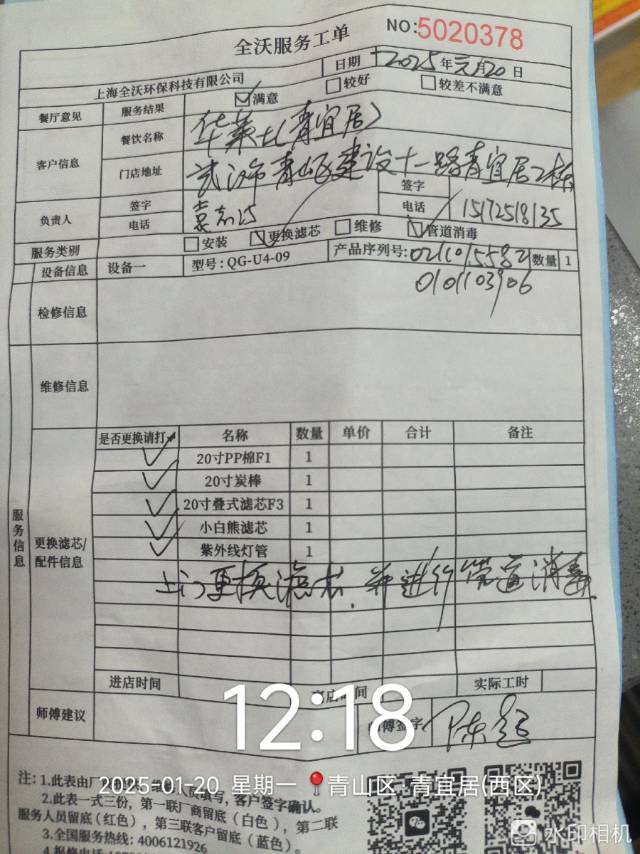 全沃服务工单
NO:5020378
上海全沃环保科技有限公司
日期 2025年元月20日
餐厅意见 服务结果 满意 较好 较差不满意
客户信息 餐饮名称 华莱士(青宜居)
门店地址 武汉市青山区建设十一路青宜居2栋
负责人 签字 签字
电话 电话 15172518135
服务类别 安装 更换滤芯 维修 管道消毒
设备信息 设备一 型号:QG-U4-09 产品序列号: 数量 1
0101103906
检修信息
维修信息
服务信息
更换滤芯/配件信息
是否更换请打✓ 名称 数量 单价 合计 备注
20寸PP棉F1 1
20寸炭棒 1
20寸叠式滤芯F3 1
小白熊滤芯 1
紫外线灯管 1
上门更换滤芯,并进行管道消毒
进店时间 时间 实际工时
师傅建议 签字
12:18
2025-01-20 星期一 青山区·青宜居(西区)
注:1.此表由厂 填写,客户签字确认。
2.此表一式三份,第一联厂商留底(白色),第二联
服务人员留底(红色),第三联客户留底(蓝色)。
3.全国服务热线:4006121926
水印相机